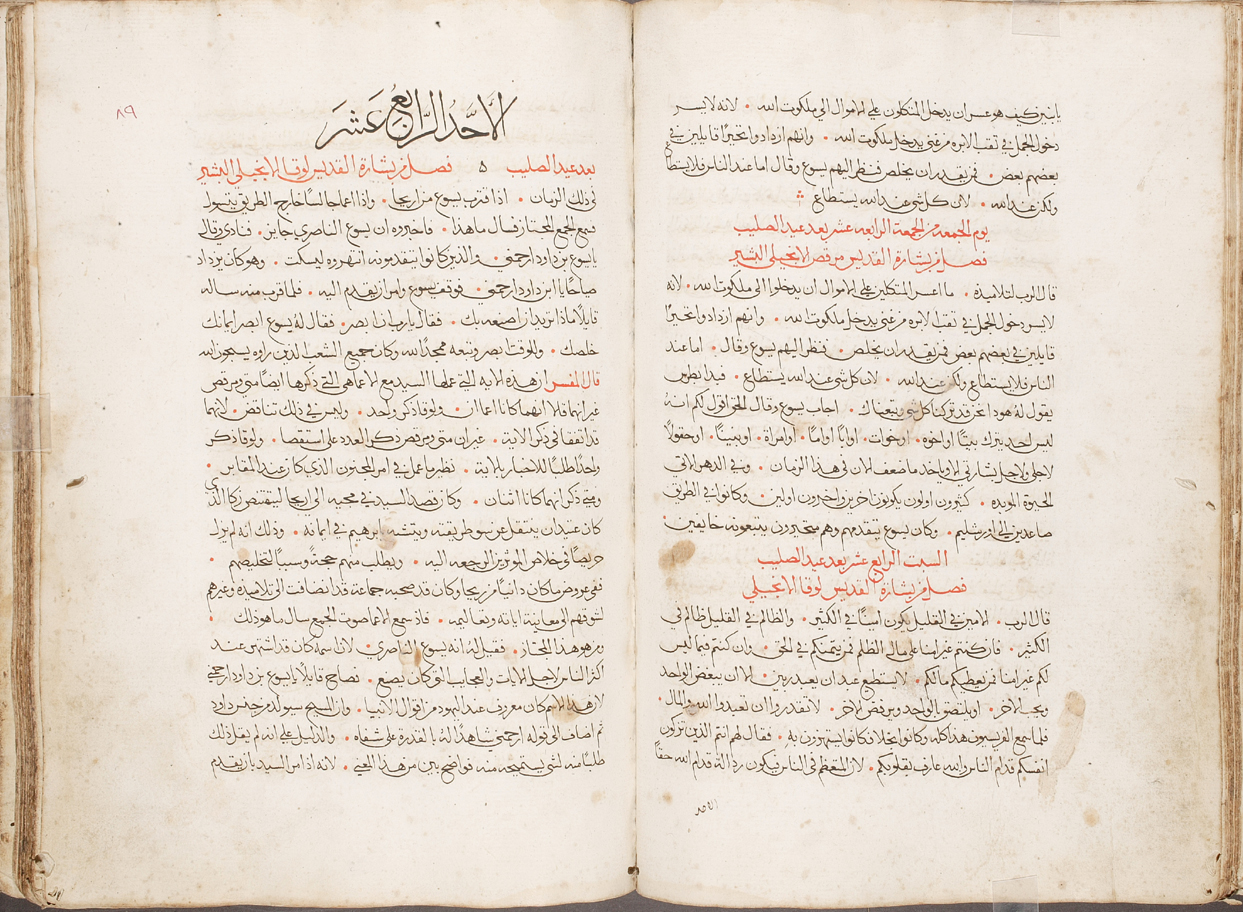 يا بنين كيف هو عسر ان يدخل المتكلون على الاموال الى ملكوت الله • لانه لايسر
دخول الجمل في ثقب الابره من غني يدخل ملكوت الله • وانهم ازدادوا تحيرًا قايلين في
بعضهم بعض • فمن يقدر ان يخلص فنظر اليهم يسوع وقال اما عند الناس فلا يستطاع
ولكن عند الله • لان كل شي عند الله يستطاع
يوم الجمعه من الجمعة الرابعه عشر بعد عيد الصليب
فصل من بشارة القديس مرقص الانجيلي البشير
قال الرب لتلاميذه • ما اعسر المتكلين على الاموال ان يدخلوا الى ملكوت الله • لانه
لايسر دخول الجمل في ثقب الابره من غني يدخل ملكوت الله • وانهم ازدادوا تحيرًا
قايلين في بعضهم بعض فمن يقدر ان يخلص • فنظر اليهم يسوع وقال • اما عند
الناس فلا يستطاع ولكن عند الله • لان كل شي عند الله يستطاع • فبدا بطرس
يقول له هوذا نحن قد تركنا كل شي وتبعناك • اجاب يسوع وقال الحق اقول لكم انه
ليس احد يترك بيتًا او اخوه • او خوات • او ابًا او امًا • او امراة • او بنينًا • او حقولًا
لاجلي ولاجل بشارتي الا وياخد ما ضعف الان في هذا الزمان • وفي الدهر الاتي
الحيوة الموبده • كثيرون اولون يكونون اخرين واخيرون اولين • وكانوا في الطريق
صاعدين الى اورشليم • وكان يسوع يتقدمهم وهم متحيرون يتبعونه خايفين •
السبت الرابع عشر بعد عيد الصليب
فصل من بشارة القديس لوقا الانجيلي
قال الرب • الامين في القليل يكون امينًا في الكثير • والظالم في القليل ظالم في
الكثير • فان كنتم غير امنا على مال الظلم فمن يتمنكم في الحق • وان كنتم فيما ليس
لكم غير امنا فمن يعطيكم مالكم • لا يستطع عبد ان يعبد ربين • الا ان يبغض الواحد
ويحب الاخر • او يلتصق بالوحد ويرفض الاخر • لا تقدروا ان تعبدوا الله والمال •
فلما سمع الفريسيون هذا كله وكانوا بخلا فكانوا يستهزون به • فقال لهم انتم الذين تزكون
انفسكم قدام الناس والله عارف بقلوبكم • لان المتعظم في الناس فيكون رذالة قدام الله حقًا
الاحد
٨٩
الاَحَدُ الرَّابِعُ عَشَرَ
بعد عيد الصليب ٥ فصل من بشارة القديس لوقا الانجيلي البشير
في ذلك الزمان • اذا قترب يسوع من اريحا • واذا اعما جالسًا خارج الطريق يتسول
فسمع الجمع المجتاز فسال ما هذا • فاخبروه ان يسوع الناصري جايز • فنادى وقال
يا يسوع بن داود ارحمني • والذين كانوا يتقدمونه انتهروه ليسكت • وهو كان يزداد
صياحًا يا ابن داود ارحمني • فوقف يسوع وامر ان يقدم اليه • فلما قرب منه ساله
قايلًا ماذا تريد ان اصنعه بك • فقال يا رب ان ابصر • فقال له يسوع ابصر ايمانك
خلصك • وللوقت ابصر وتبعه ممجدًا لله وكان جميع الشعب الذين راوه يسبحون الله
قال المفسر ان هذه الايه التي عملها السيد مع الاعما هي التي ذكرها ايضًا متى ومرقص
غير انهما قالا انهما كانا اعمان • ولوقا ذكر واحد • وليس في ذلك تناقض • لانهما
قد اتفقا في ذكر الاية • غير ان متى ومرقص ذكر العدد على استقصا • ولوقا ذكر
واحدًا طلبًا للاخبار بالاية • نظير ما عمل في امر المجنون الذي كان عند المقابر •
ومتى ذكر انهما كانا اثنان • وكان قصد السيد في مجيه الى اريحا ليقتنص زكا الذي
كان عتيدان ينتقل عن سو طريقته ويتشبه بابرهيم في ايمانه • وذلك انه لم يزل
حريصًا في خلاص المومنين الرجعه اليه • ويطلب منهم حجةً وسببًا لتخليصهم •
ففي عروض ما كان دانيًا من اريحا وكان قد صحبه جماعة قد انضافت الى تلاميذه وغيرهم
لشوقهم الى معاينة اياته وتعاليمه • فاذ سمع الاعما صوت الجمع سال ما هو ذلك •
ومن هو هذا المجتاز • فقيل له انه يسوع الناصري • لان اسمه كان قد اشتهر عند
اكثر الناس لاجل الايات والعجايب التي كان يصنع • فصاح قايلًا يا يسوع بن داود ارحمني
لان هذا الاسم كان معروف عند اليهود من اقوال الانبيا • وان المسيح سيولد من جنس داود
ثم اضاف الى قوله ارحمني شاهدًا له بالقدرة على شفاه • والدليل على انه لم يقل ذلك
طلبًا منه لشي يستميحه منه فواضح بين من هذا المعنى • لانه اذ امر السيد بان يقدم